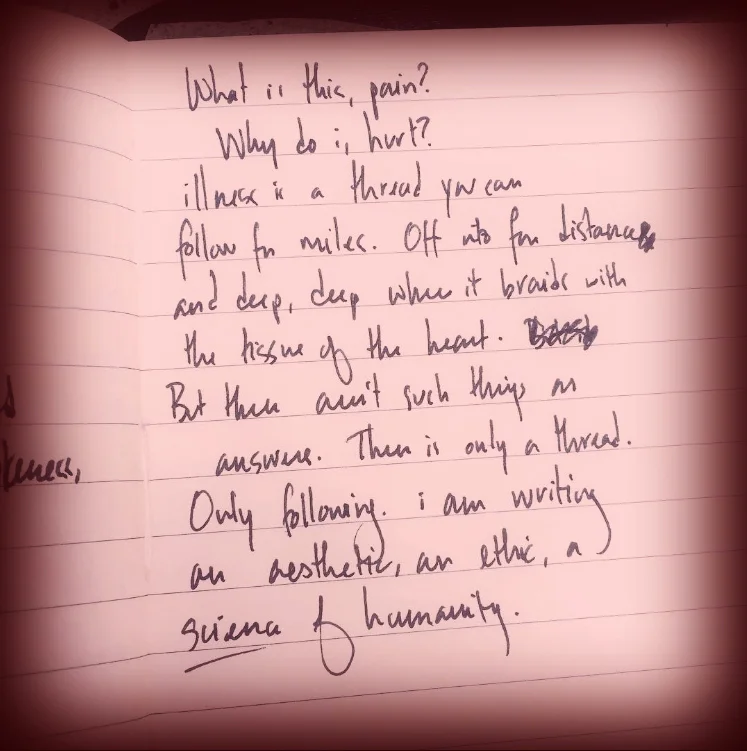 What is this, pain?
Why do i, hurt?
illness is a thread you can
follow for miles. Off into far distance
and deep, deep where it braids with
the tissue of the heart.
But there ain't such things as
answers. There is only a thread.
Only following. i am writing
an aesthetic, an ethic, a
science of humanity.